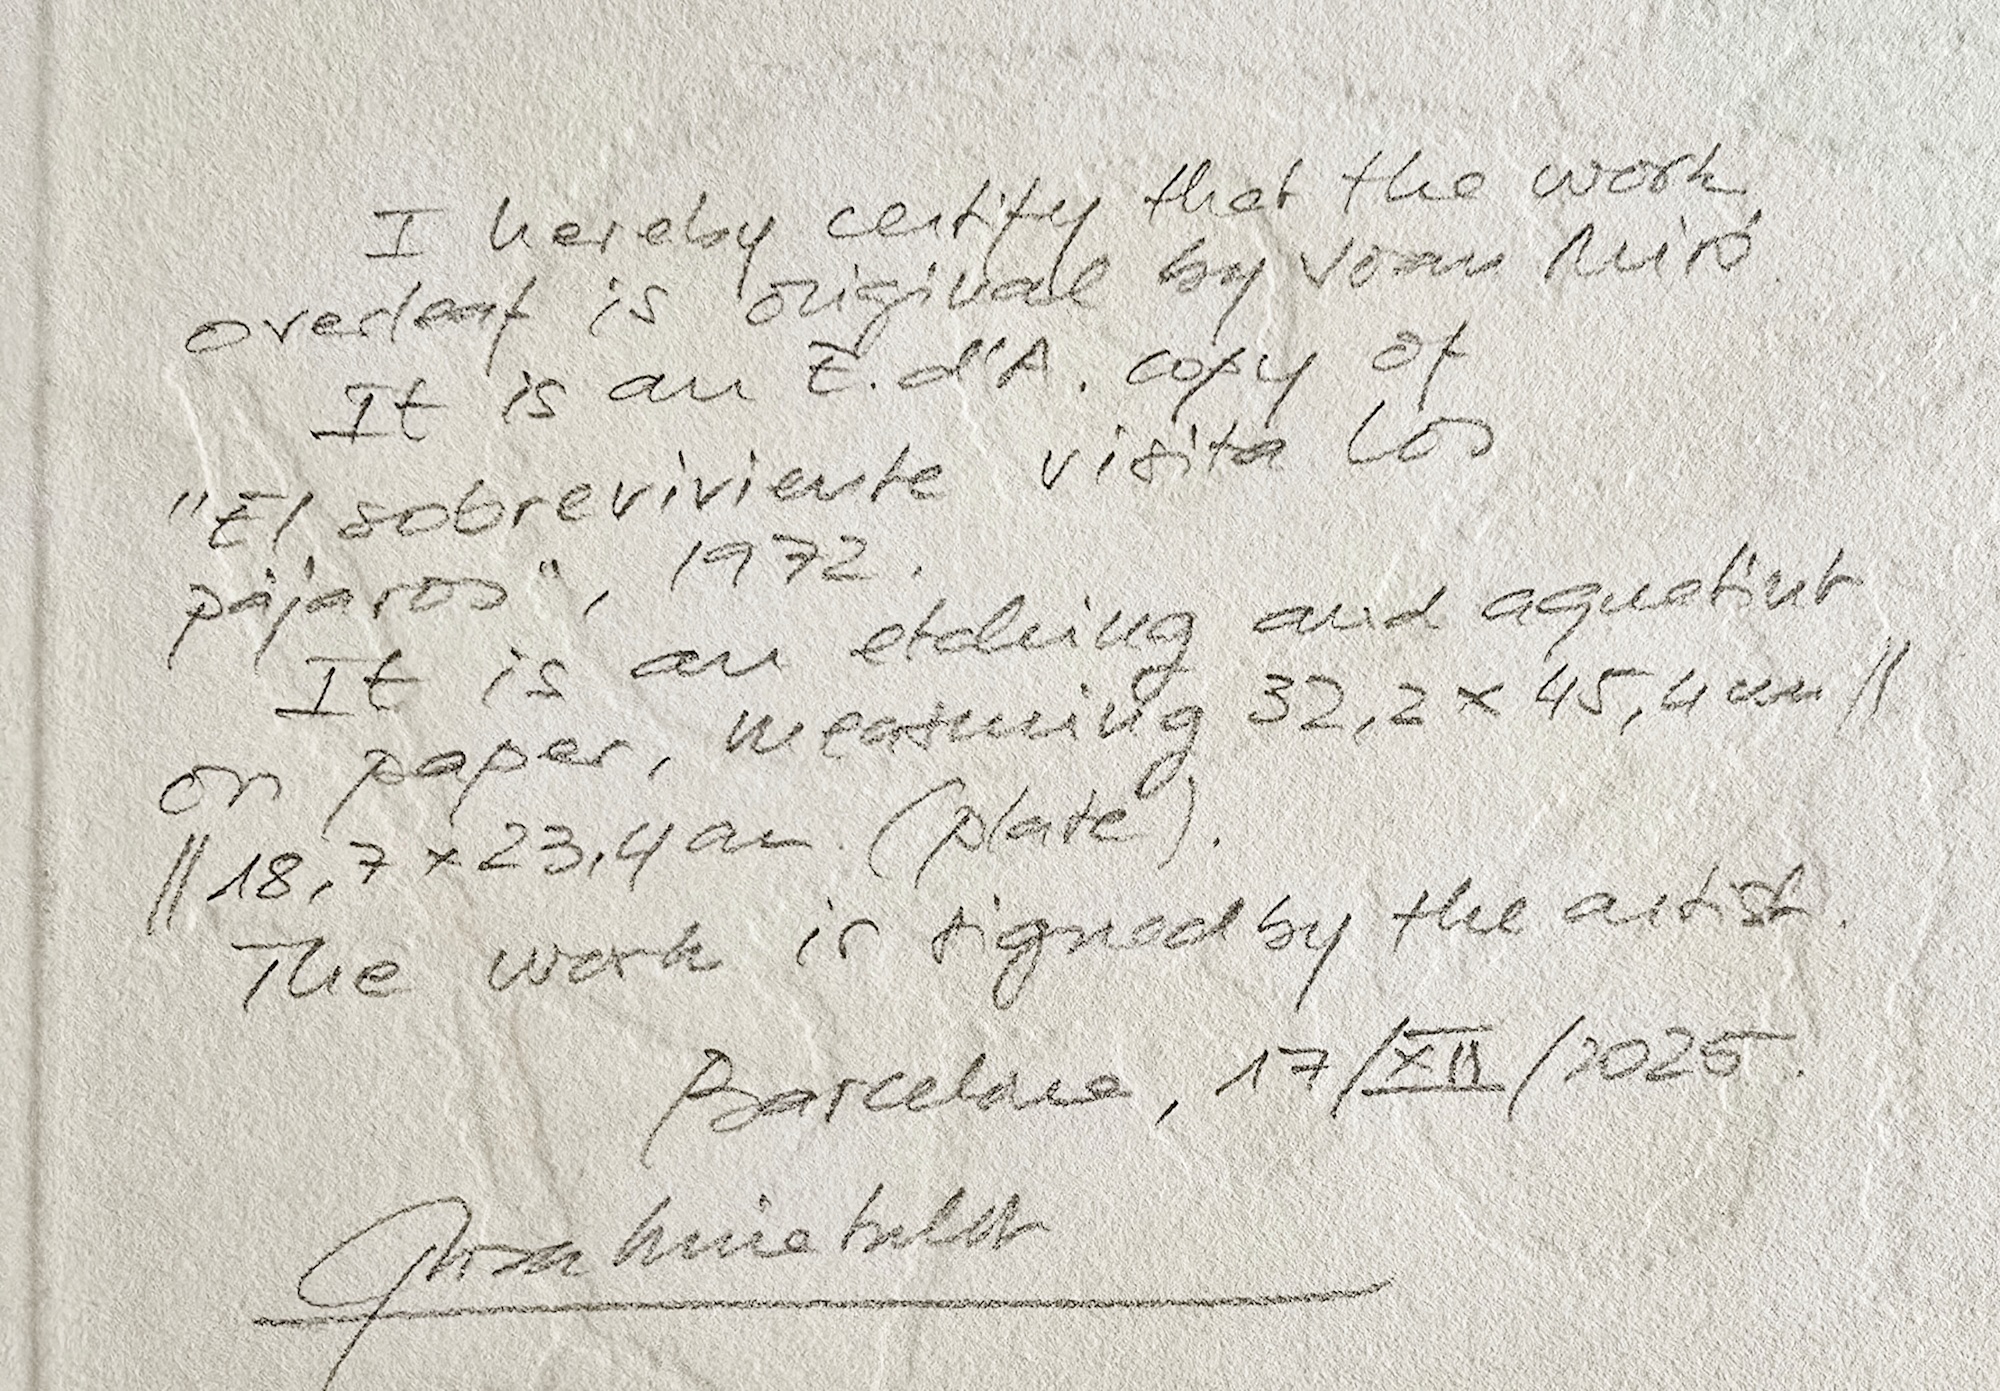 I hereby certify that the work
overleaf is original by Joan Miró.
It is an E. d'A. copy of
"El sobreviviente visita los
pájaros", 1972.
It is an etching and aquatint
on paper, measuring 32,2 x 45,4 cm //
// 18,7 x 23,4 cm (plate).
The work is signed by the artist.
Barcelona, 17/XII/2025.